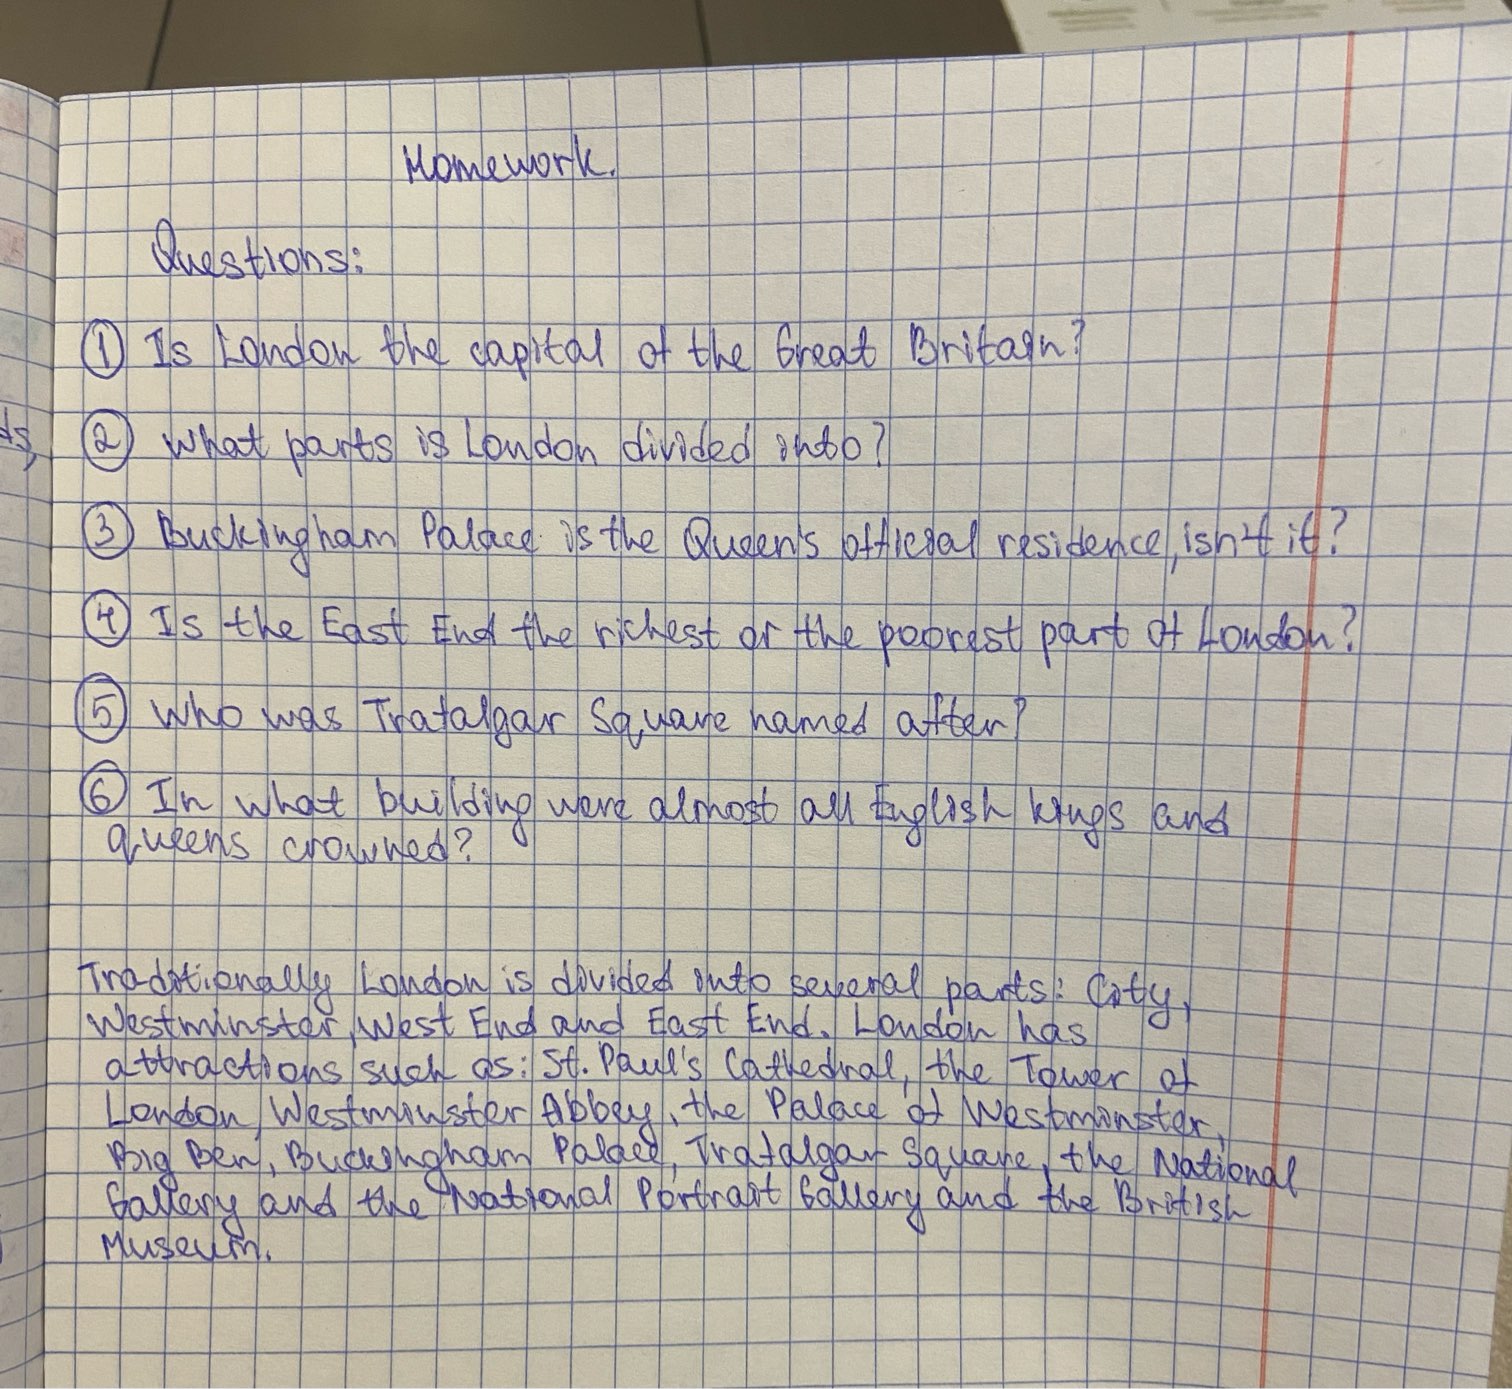 Homework.
Questions:
① Is London the capital of the Great Britain?
② What parts is London divided into?
③ Buckingham Palace is the Queen's official residence, isn't it?
④ Is the East End the richest or the poorest part of London?
⑤ Who was Trafalgar Square named after?
⑥ In what building were almost all English kings and
queens crowned?
Traditionally London is divided into several parts: City,
Westminster, West End and East End. London has
attractions such as: St. Paul's Cathedral, the Tower of
London, Westminster Abbey, the Palace of Westminster,
Big Ben, Buckingham Palace, Trafalgar Square, the National
Gallery and the National Portrait Gallery and the British
Museum.